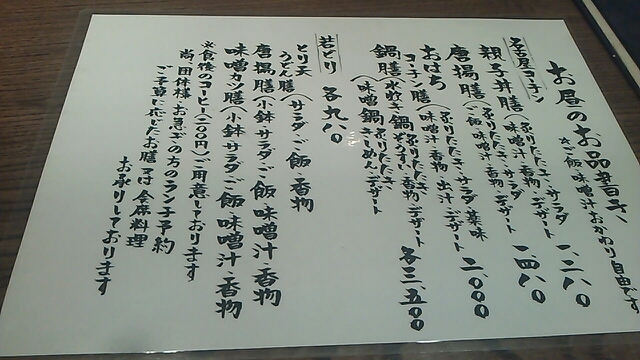 お昼のお品書き
※ご飯・味噌汁おかわり自由です
名古屋コーチン
親子丼膳(ぷりたたき・サラダ 味噌汁・香物・デザート 一、二八〇
唐揚膳(ぷりたたき・サラダ ご飯・味噌汁・香物・デザート 一、四八〇
おはち(ぷりたたき・サラダ・薬味 味噌汁・香物・出汁・デザート 二、〇〇〇
コーチン膳
鍋膳 水炊き鍋(ぷりたたき ぞうすい・香物・デザート
味噌鍋(ぷりたたき きしめん・デザート 各三、五〇〇
若どり 各九八〇
とり天
うどん膳(サラダ・ご飯・香物
唐揚膳(小鉢・サラダ・ご飯・味噌汁・香物
味噌カツ膳(小鉢・サラダ・ご飯・味噌汁・香物
☆食後のコーヒー(二〇〇円)ご用意しております
尚、団体様・お急ぎの方のランチ予約
ご予算に応じたお膳又は会席料理
お承りしております